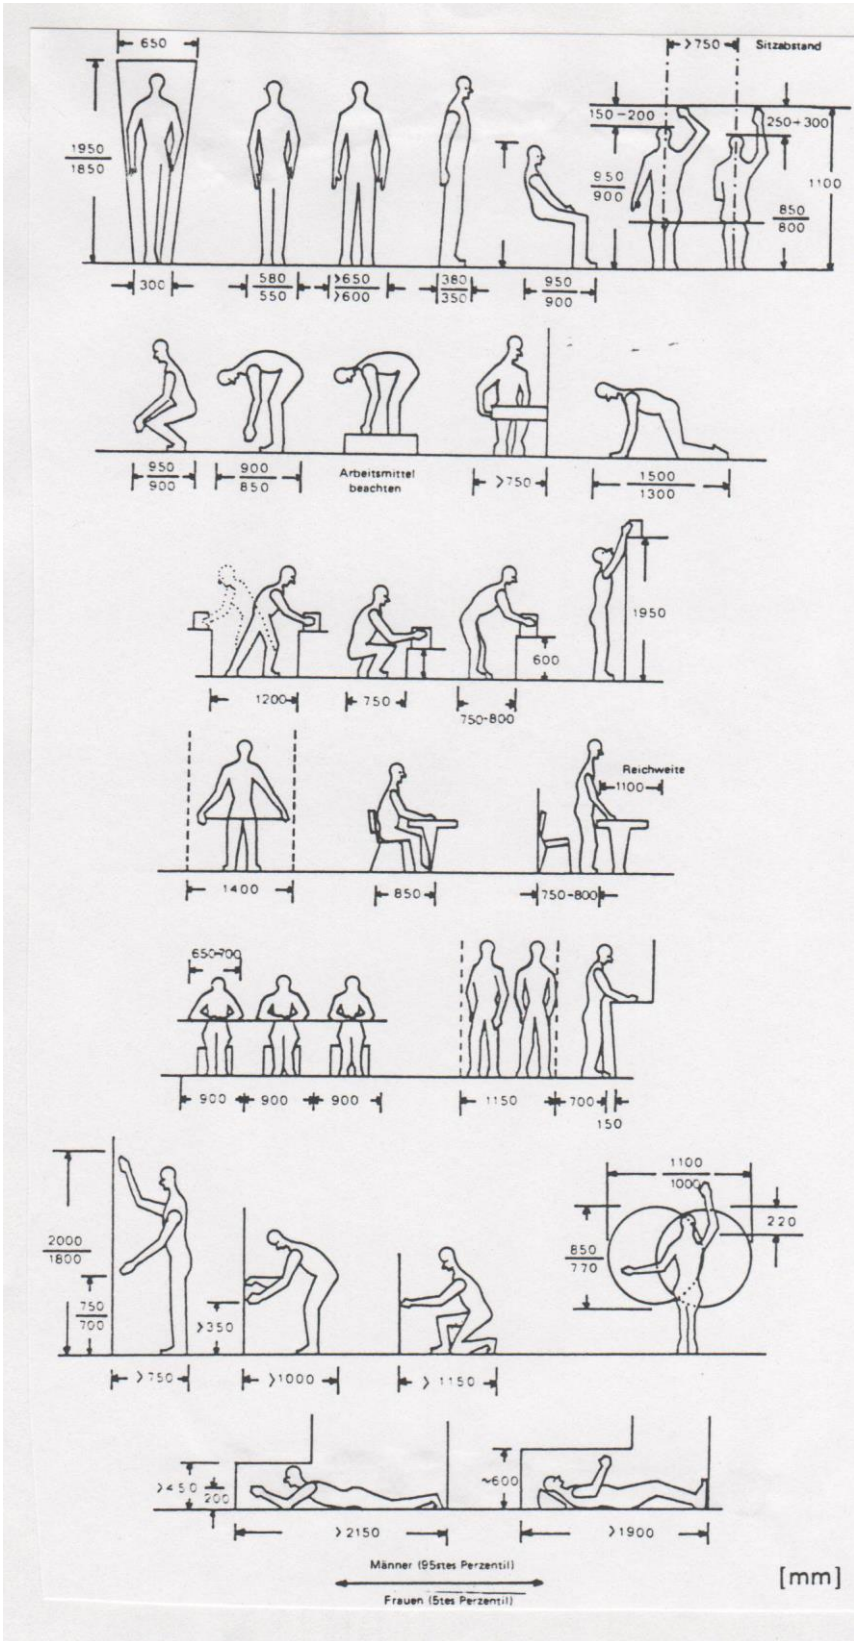 650
>750
Sitzabstand
150-200
250÷300
1950
1850
950
900
1100
850
800
300
580
550
>650
>600
380
350
950
900
950
900
900
850
Arbeitsmittel
beachten
>750
1500
1300
1950
600
1200
750
750-800
Reichweite
1100
1400
850
750-800
650-700
900
900
900
1150
700
150
1100
1000
220
2000
1800
850
770
750
700
>350
>750
>1000
>1150
>450
200
~600
>2150
>1900
Männer (95stes Perzentil)
Frauen (5tes Perzentil)
[mm]